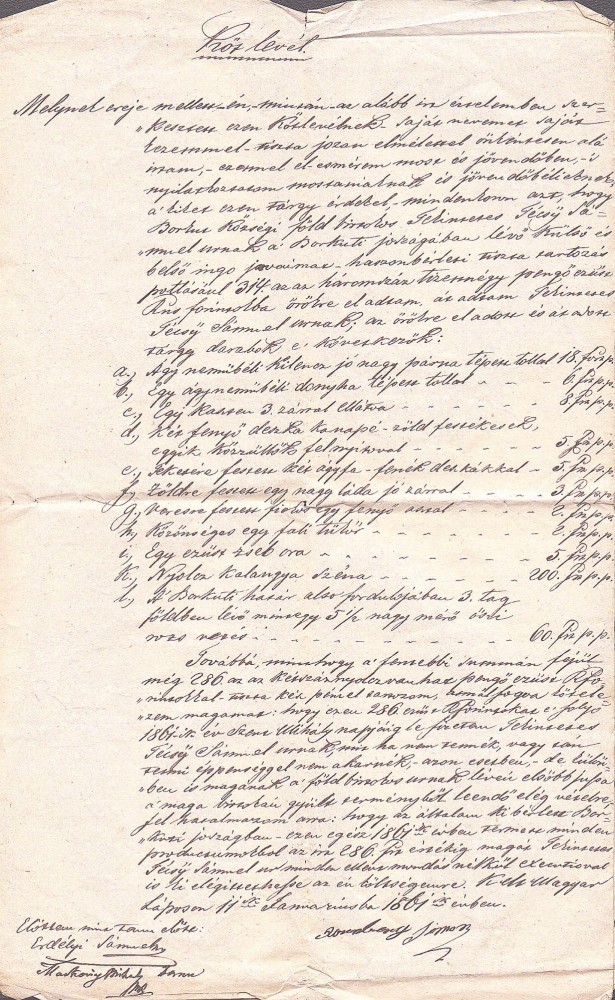 Köt levél.
Melynek ereje mellett én, miután az alább irt értelemben szer-
kesztett ezen Kötlevélnek saját nevemet saját
kezemmel tiszta jozan elmélettel önkéntesen alá
irtam, ezennel el esmérem most és jövendőben, s
nyilatkoztatom mostaniaknak és jövendőbélieknek,
a kiket ezen tárgy érdekel, mindenkorra azt, hogy
Borkut Községi föld birtokos Tekintetes Técsy Sá-
muel urnak a Borkuti joszágában lévő Külső és
belső ingo javaimat haszonbérlesi tiszta tartozás
potlásául 314. az az háromszáz tizennégy pengő ezüst
forintokba örökre el adtam, át adtam Tekintetes
Técsy Sámuel urnak; az örökre el adott és át adott
tárgy darabok e' következők:
a., Ágy neműbéli Kilencz jó nagy párna tépett tollal 18. for p.p.
b., Egy ágyneműbéli donyha tépett tollal 6. frt p.p.
c., Egy Kaszten 3. zárral ellátva 8. frt p.p.
d., Két fenyő deszka kanapé zöld festékesek,
egyik közzüllök fel nyitoval 5. frt p.p.
e., Feketére festett két ágyfa fenék deszkákkal 5. frt p.p.
f., Zöldre festett egy nagy láda jó zárral 3. frt p.p.
g., Veresre festett fiókos egy fenyő asztal 2. frt p.p.
h., Közönséges egy fali tükör 2. frt p.p.
i., Egy ezüst zseb ora 5. frt p.p.
k., Nyolcz Kalangya Széna 200. frt p.p.
l., A Borkuti határ alsó fordulójában 3. tag
földben lévő mintegy 5 1/2 nagy mérő őszi
rozs vetés 60. frt p.p.
Továbbá, minthogy a' fentebbi summán féjül
még 286. az az kétszáznyolczvanhat pengő ezüst
tiszta kéz pénzel tartozom, kötele-
zem magamat: hogy ezen 286. ezüst e' folyó
1861-ik év Szent Mihály napjáig le fizetem Tekintetes
Técsy Sámuel urnak, mit ha nem tennék, vagy
tenni éppenséggel nem akarnék, azon esetben, de külön-
ben is magának a' föld birtokos urnak lévén elsőbb jussa
a' maga birtokán gyült terményből leendő elég vételre
fel hatalmazom arra: hogy az általam ki bérlett Bor-
kuti joszágban ezen egész 1861-ik évben termett minden
productumokbol az irt 286. frt értékig magát Tekintetes
Técsy Sámuel ur minden ellenmondás nélkül executioval
is ki elégittethesse az én költségemre. Kelt Magyar
Láposon 11-ik Januáriusba 1861-ik évben.
Simon
Előttem mint tanu előtt:
Erdélyi Sámuel
Mihály tanu